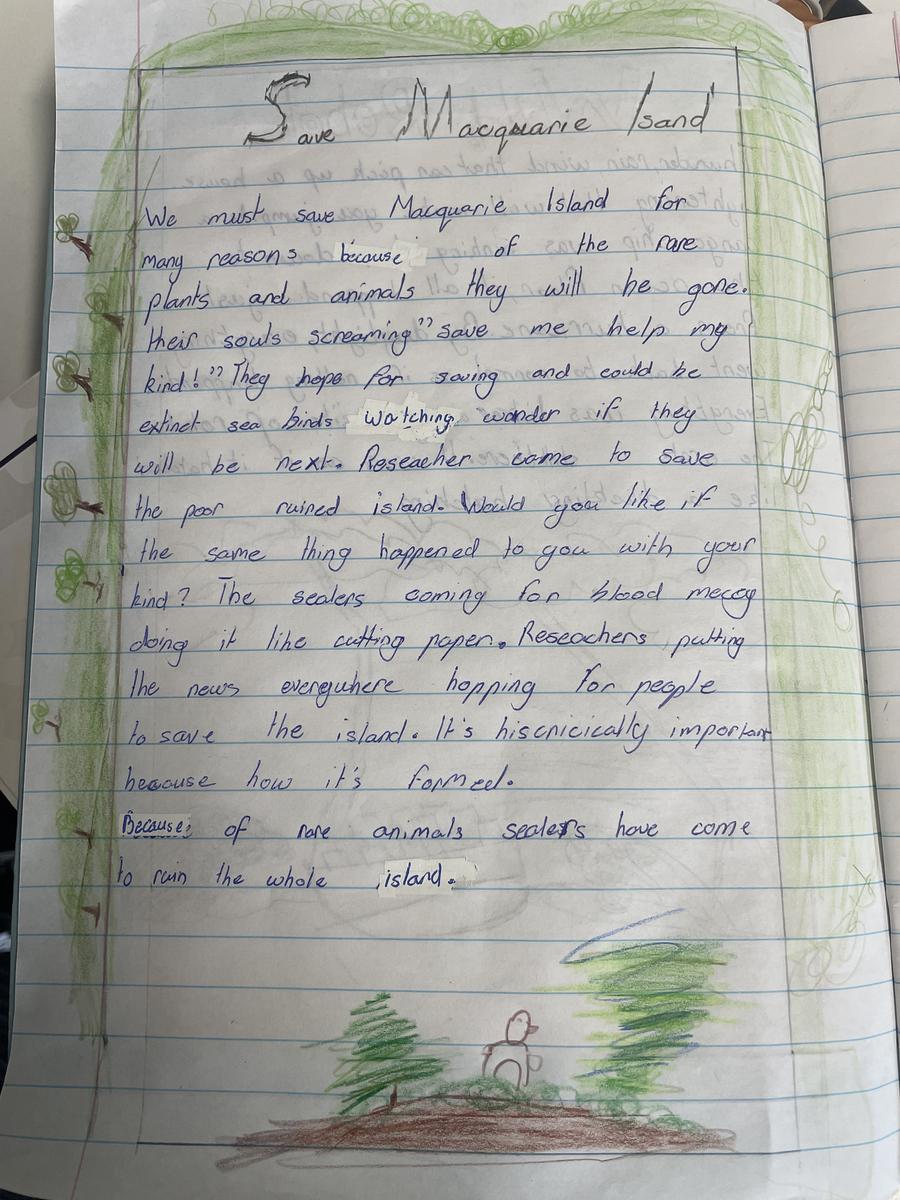 Save Macquarie Isand
We must save Macquarie Island for
many reasons because of the rare
plants and animals they will be gone.
their souls screaming" save me help my
kind!" They hope for saving and could be
extinct sea birds watching wonder if they
will be next. Reseacher came to save
the poor ruined island. Would you like if
the same thing happened to you with your
kind? The sealers coming for blood meccy
doing it like cutting paper. Reseachers putting
the news everywhere hopping for people
to save the island. It's hiscricically important
because how it's formed.
Because of rare animals sealers have come
to ruin the whole island.